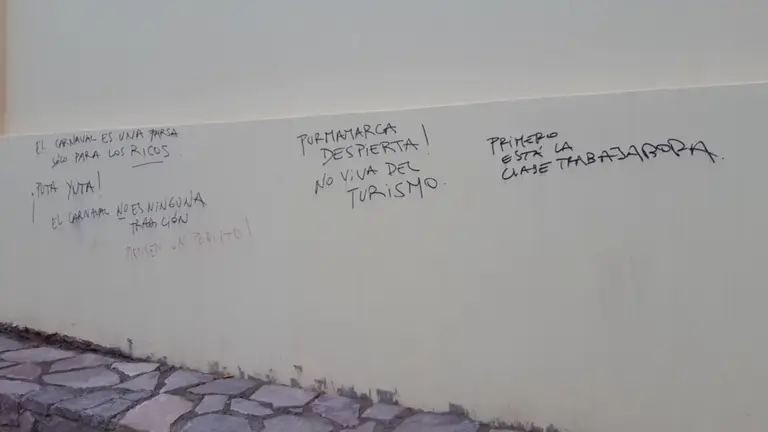 EL CARNAVAL ES UNA FARSA
SÓLO PARA LOS RICOS
¡PUTA YUTA!
EL CARNAVAL NO ES NINGUNA
TRADICIÓN
PURMAMARCA
DESPIERTA!
NO VIVA DEL
TURISMO.
PRIMERO
ESTÁ LA
CLASE TRABAJADORA.